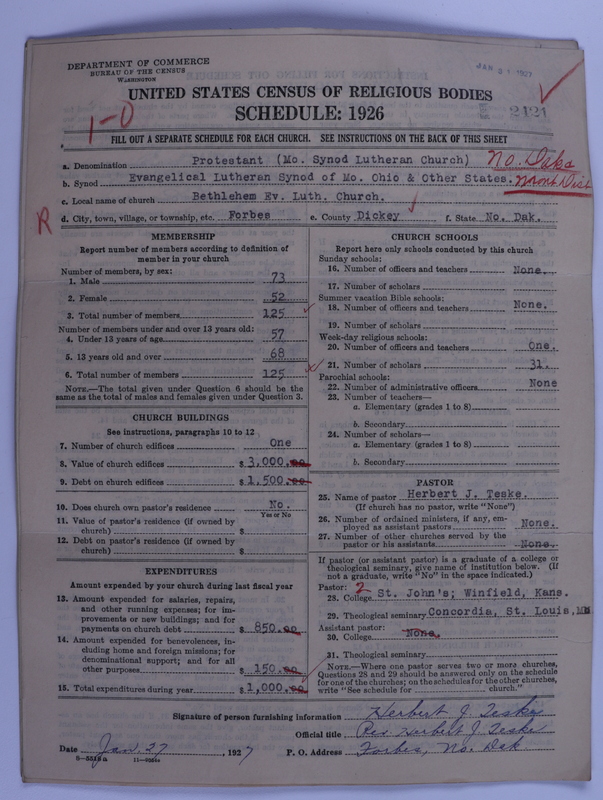 DEPARTMENT OF COMMERCE
BUREAU OF THE CENSUS
WASHINGTON
JAN 21 1927
UNITED STATES CENSUS OF RELIGIOUS BODIES
SCHEDULE: 1926
2121
1-0
FILL OUT A SEPARATE SCHEDULE FOR EACH CHURCH. SEE INSTRUCTIONS ON THE BACK OF THIS SHEET
a. Denomination Protestant (Mo. Synod Lutheran Church) No. Daks
b. Synod Evangelical Lutheran Synod of Mo. Ohio & Other States.
c. Local name of church Bethlehem Ev. Luth. Church.
R
d. City, town, village, or township, etc. Forbes e. County Dickey f. State No. Dak.
MEMBERSHIP
Report number of members according to definition of member in your church
Number of members, by sex:
1. Male 73
2. Female 52
3. Total number of members 125
Number of members under and over 13 years old:
4. Under 13 years of age 57
5. 13 years old and over 68
6. Total number of members 125
NOTE.—The total given under Question 6 should be the same as the total of males and females given under Question 3.
CHURCH BUILDINGS
See instructions, paragraphs 10 to 12
7. Number of church edifices One
8. Value of church edifices $ 3,000.00
9. Debt on church edifices $ 1,500.00
10. Does church own pastor's residence No.
Yes or No
11. Value of pastor's residence (if owned by church) $
12. Debt on pastor's residence (if owned by church) $
EXPENDITURES
Amount expended by your church during last fiscal year
13. Amount expended for salaries, repairs, and other running expenses; for improvements or new buildings; and for payments on church debt $ 850.00
14. Amount expended for benevolences, including home and foreign missions; for denominational support; and for all other purposes $ 150.00
15. Total expenditures during year $ 1,000.00
CHURCH SCHOOLS
Report here only schools conducted by this church
Sunday schools:
16. Number of officers and teachers None.
17. Number of scholars
Summer vacation Bible schools:
18. Number of officers and teachers None.
19. Number of scholars
Week-day religious schools:
20. Number of officers and teachers One.
21. Number of scholars 31.
Parochial schools:
22. Number of administrative officers None
23. Number of teachers—
a. Elementary (grades 1 to 8)
b. Secondary
24. Number of scholars—
a. Elementary (grades 1 to 8)
b. Secondary
PASTOR
25. Name of pastor Herbert J. Teske.
(If church has no pastor, write "None")
26. Number of ordained ministers, if any, employed as assistant pastors None.
27. Number of other churches served by the pastor or his assistants None.
If pastor (or assistant pastor) is a graduate of a college or theological seminary, give name of institution below. (If not a graduate, write "No" in the space indicated.)
Pastor: 2
28. College St. John's; Winfield, Kans.
29. Theological seminary Concordia, St. Louis, Mo
Assistant pastor:
30. College None.
31. Theological seminary
NOTE.—Where one pastor serves two or more churches, Questions 28 and 29 should be answered only on the schedule for one of the churches; on the schedules for the other churches, write "See schedule for church."
Signature of person furnishing information Herbert J. Teske
Official title Rev. Herbert J. Teske
Date Jan. 27, 1927 P. O. Address Forbes, No. Dak